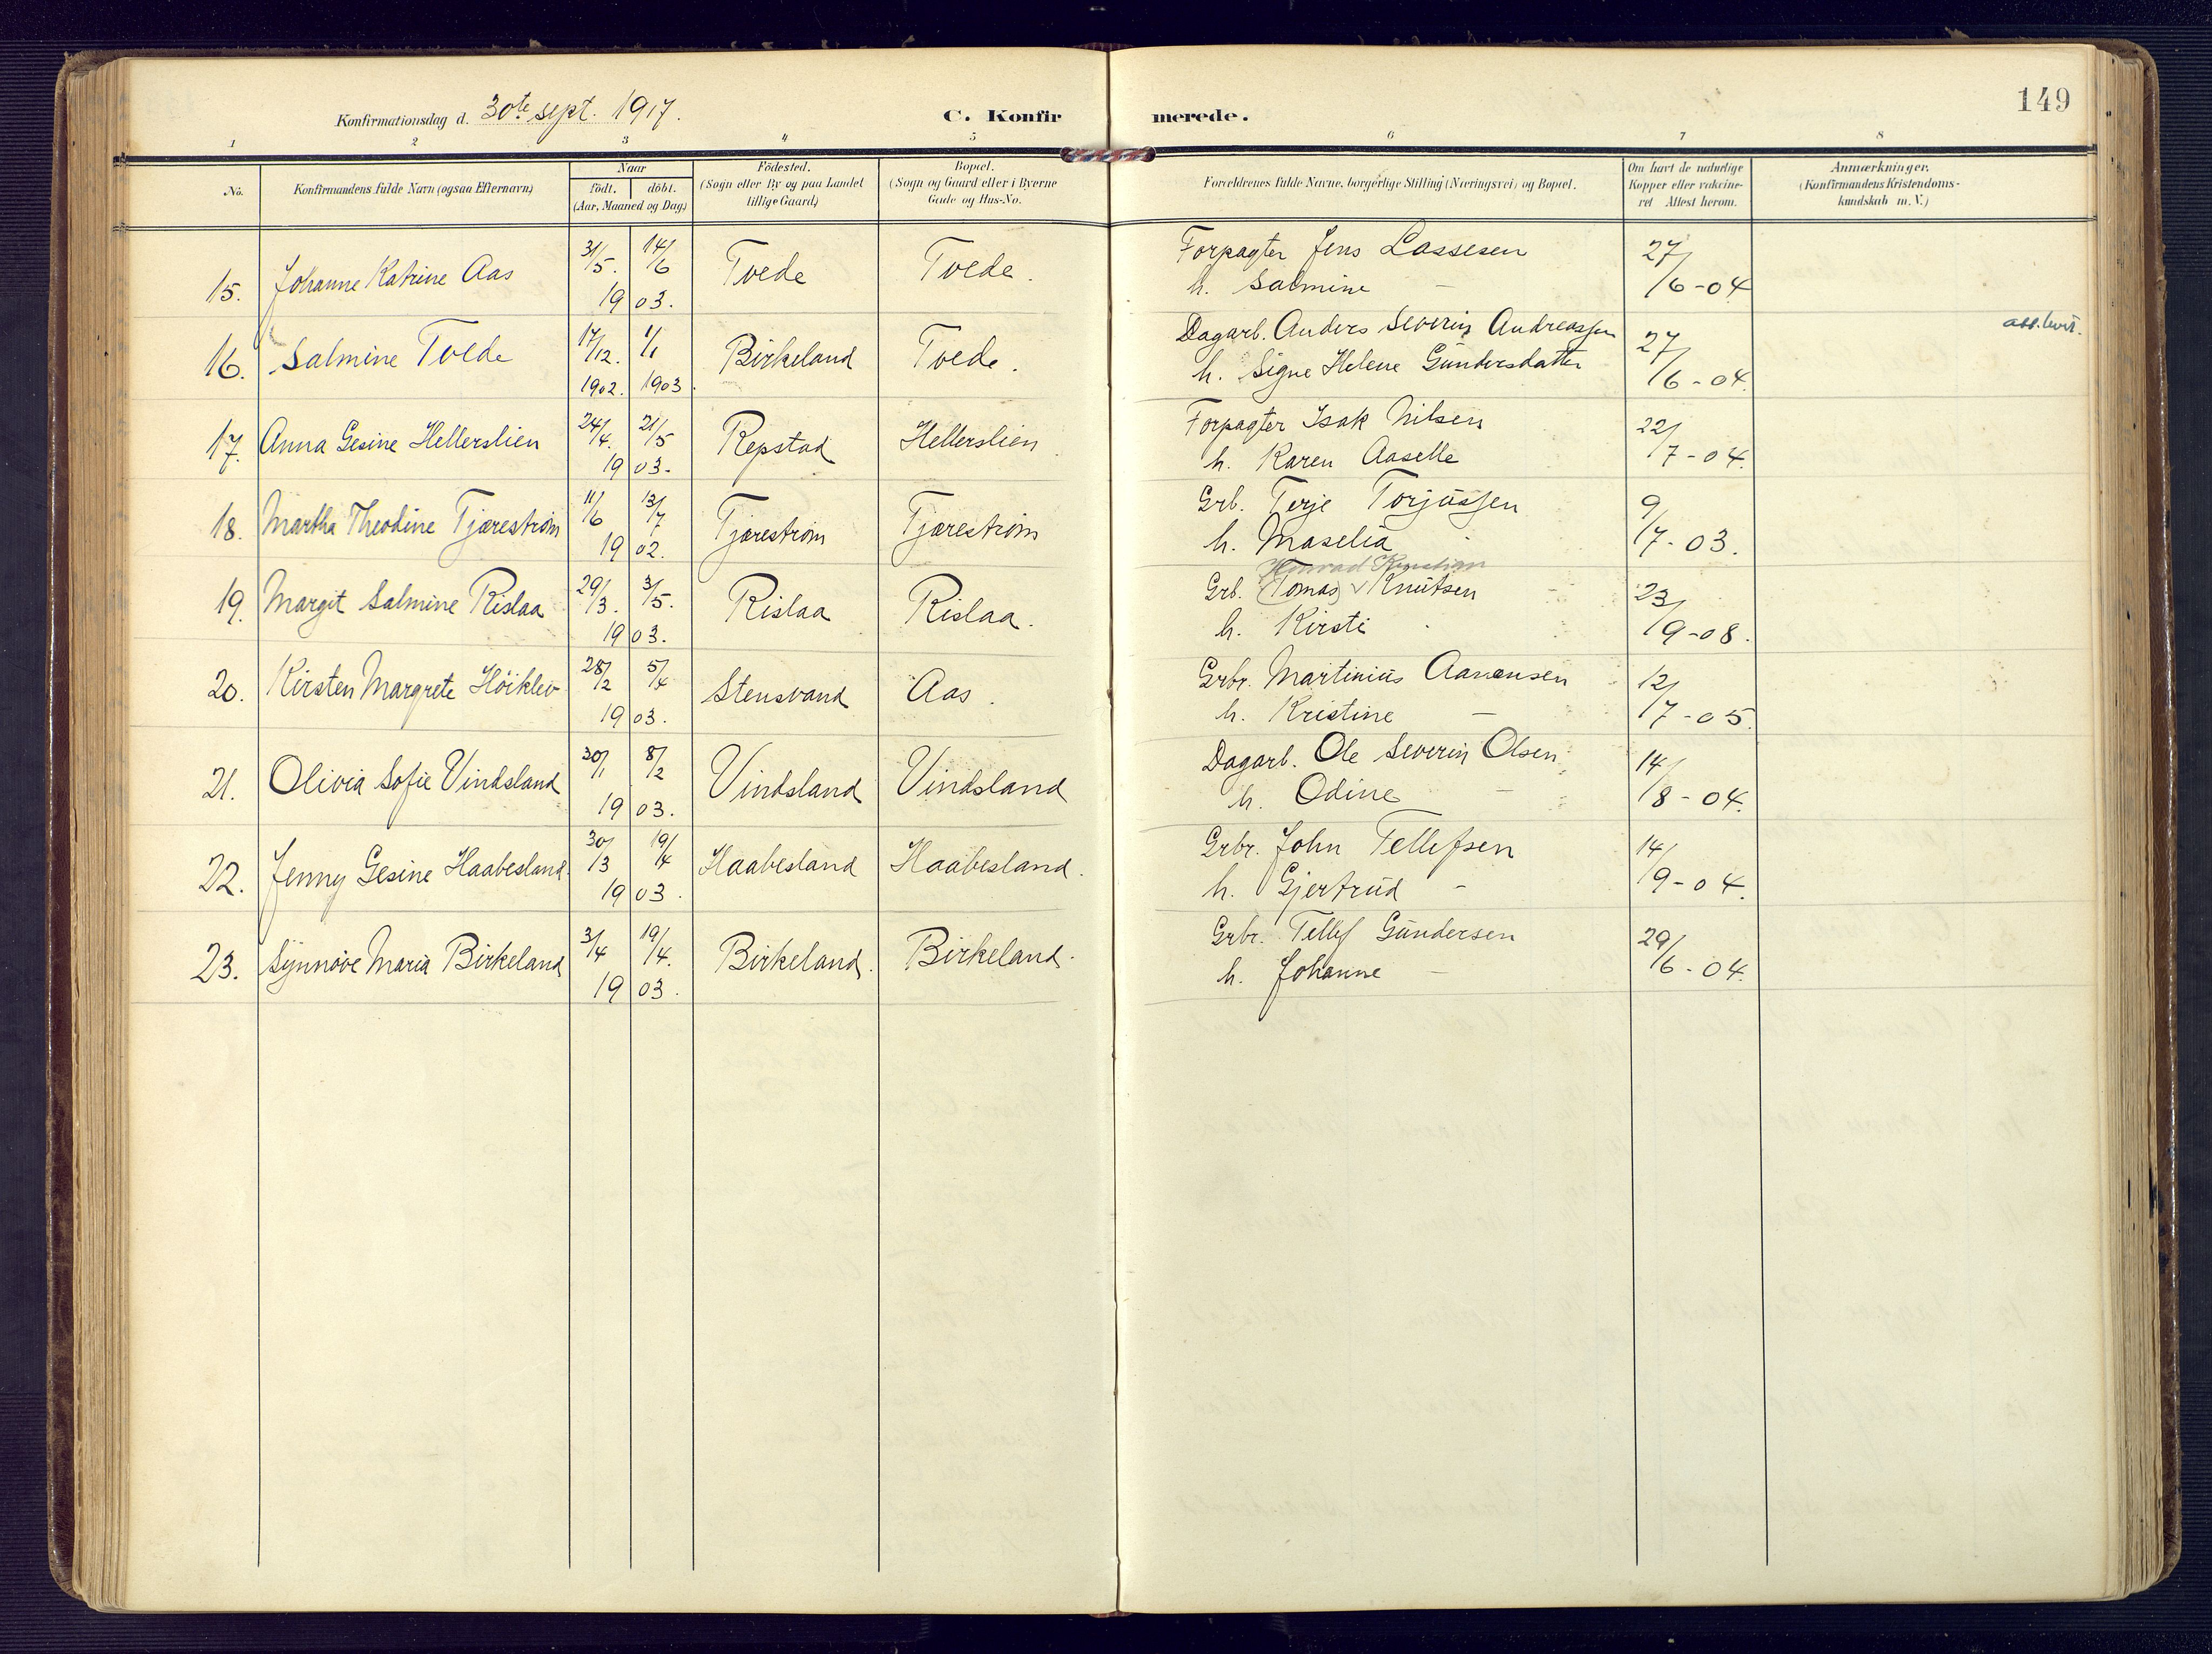 149
Konfirmationsdag d. 30te sept. 1917.
C. Konfirmerede.
1 2 3 4 5 6 7 8
No.
Konfirmandens fulde Navn (ogsaa Efternavn)
Naar
födt. döbt.
(Aar, Maaned og Dag)
Födested.
(Sogn eller By og paa Landet
tillige Gaard)
Bopæl.
(Sogn og Gaard eller i Byerne
Gade og Hus-No.
Forældrenes fulde Navne, borgerlige Stilling (Næringsvei) og Bopæl.
Om havt de naturlige
Kopper eller vakcine-
ret Attest herom.
Anmærkninger.
(Konfirmandens Kristendoms-
kundskab m. V.)
15. Johanne Katrine Aas 31/5. 14/6 1903. Tvede Tvede. Forpagter Jens Lassesen 27/6-04
h. Salmine —
16. Salmine Tvede 17/12. 1902. 1/1 1903. Birkeland Tvede. Dagarb. Anders Severin Andreassen 27/6-04.
h. Signe Helene Gundersdatter
17. Anna Gesine Hellerslien 24/4. 21/5 1903. Repstad Hellerslien Forpagter Isak Nilsen 22/7-04.
h. Karen Aaselle
18. Martha Theodine Tjærestrøm 11/6 13/7 1902. Tjærestrøm Tjærestrøm Grb. Terje Torjussen 9/7-03.
h. Maselia
Konrad Kristian
19. Margit Salmine Rislaa 29/3. 3/5. 1903. Rislaa Rislaa. Grb. (Tomas) v Knutsen 23/9-08.
h. Kirsti
20. Kirsten Margrete Höiklev 28/2 5/4 1903. Stensvand Aas. Grbr. Martinius Aanensen 12/7-05.
h. Kristine —
21. Olivia Sofie Vindsland 30/1 8/2 1903. Vindsland Vindsland Dagarb. Ole Severin Olsen 14/8-04.
h. Odine —
22. Jenny Gesine Haabesland. 30/3 19/4 1903. Haabesland Haabesland. Grbr. John Tellefsen 14/9-04.
h. Gjertrud —
23. Synnøve Maria Birkeland 3/4 19/4. 1903. Birkeland. Birkeland. Grbr. Tellef Gundersen 29/6-04.
h. Johanne —